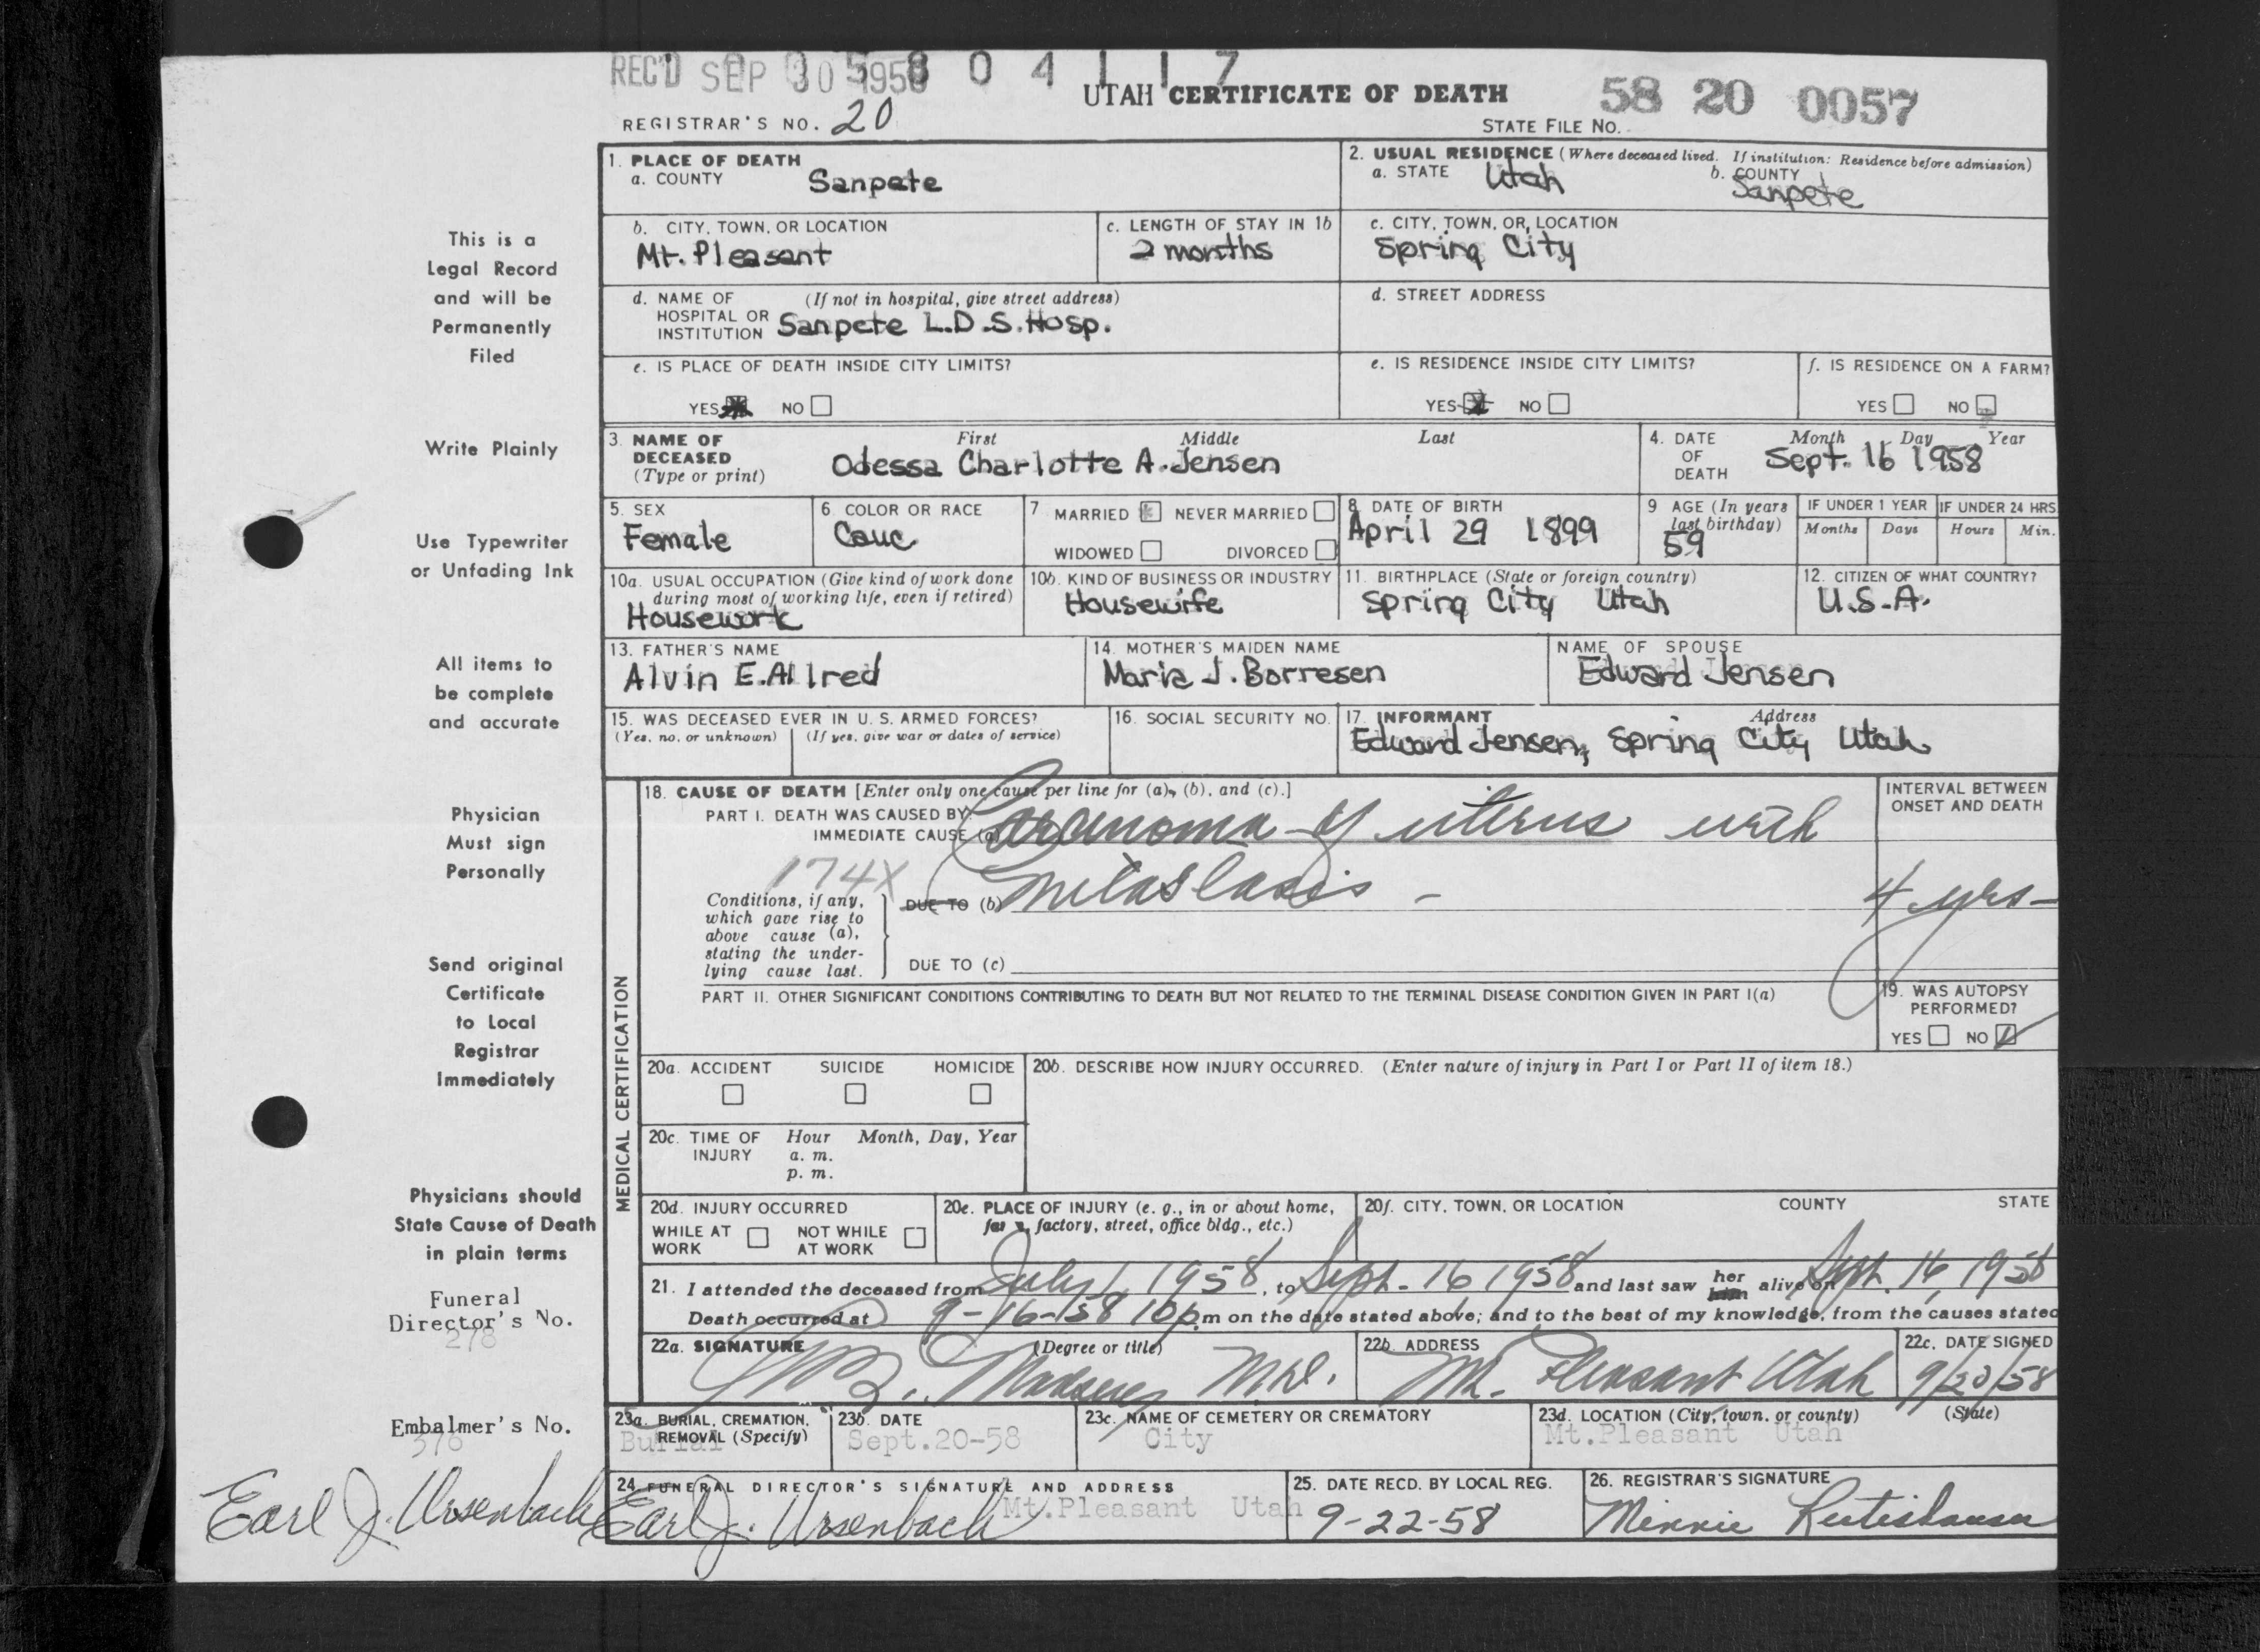 REC'D SEP 30 1958
5 8 0 4 1 1 7
UTAH CERTIFICATE OF DEATH
58 20 0057
REGISTRAR'S NO. 20
STATE FILE NO.
1. PLACE OF DEATH
a. COUNTY Sanpete
2. USUAL RESIDENCE (Where deceased lived. If institution: Residence before admission)
a. STATE Utah b. COUNTY Sanpete
b. CITY, TOWN, OR LOCATION
Mt. Pleasant
c. LENGTH OF STAY IN 1b
2 months
c. CITY, TOWN, OR LOCATION
Spring City
d. NAME OF (If not in hospital, give street address)
HOSPITAL OR
INSTITUTION Sanpete L.D.S. Hosp.
d. STREET ADDRESS
e. IS PLACE OF DEATH INSIDE CITY LIMITS?
YES NO
e. IS RESIDENCE INSIDE CITY LIMITS?
YES NO
f. IS RESIDENCE ON A FARM?
YES NO
3. NAME OF DECEASED (Type or print)
First Middle Last
Odessa Charlotte A. Jensen
4. DATE OF DEATH
Month Day Year
Sept. 16 1958
5. SEX
Female
6. COLOR OR RACE
Cauc
7 MARRIED NEVER MARRIED
WIDOWED DIVORCED
8. DATE OF BIRTH
April 29 1899
9 AGE (In years last birthday)
59
IF UNDER 1 YEAR
Months Days
IF UNDER 24 HRS
Hours Min.
10a. USUAL OCCUPATION (Give kind of work done
during most of working life, even if retired)
Housework
10b. KIND OF BUSINESS OR INDUSTRY
Housewife
11. BIRTHPLACE (State or foreign country)
Spring City Utah
12. CITIZEN OF WHAT COUNTRY?
U.S.A.
13. FATHER'S NAME
Alvin E. Allred
14. MOTHER'S MAIDEN NAME
Maria J. Borresen
NAME OF SPOUSE
Edward Jensen
15. WAS DECEASED EVER IN U. S. ARMED FORCES?
(Yes, no, or unknown) (If yes, give war or dates of service)
16. SOCIAL SECURITY NO.
17. INFORMANT Address
Edward Jensen, Spring City Utah
18. CAUSE OF DEATH [Enter only one cause per line for (a), (b), and (c).]
PART I. DEATH WAS CAUSED BY:
IMMEDIATE CAUSE (a) Carcinoma of uterus with
174X
DUE TO (b) metastasis -
Conditions, if any,
which gave rise to
above cause (a),
stating the under-
lying cause last.
DUE TO (c)
INTERVAL BETWEEN
ONSET AND DEATH
4 yrs-
PART II. OTHER SIGNIFICANT CONDITIONS CONTRIBUTING TO DEATH BUT NOT RELATED TO THE TERMINAL DISEASE CONDITION GIVEN IN PART I(a)
19. WAS AUTOPSY
PERFORMED?
YES NO
20a. ACCIDENT SUICIDE HOMICIDE
20b. DESCRIBE HOW INJURY OCCURRED. (Enter nature of injury in Part I or Part II of item 18.)
20c. TIME OF INJURY
Hour Month, Day, Year
a. m.
p. m.
20d. INJURY OCCURRED
WHILE AT WORK NOT WHILE AT WORK
20e. PLACE OF INJURY (e. g., in or about home,
factory, street, office bldg., etc.)
20f. CITY, TOWN, OR LOCATION COUNTY STATE
21. I attended the deceased from July 1, 1958, to Sept. 16, 1958 and last saw her him alive on Sept. 16, 1958
Death occurred at 9-16-58 10 p.m on the date stated above; and to the best of my knowledge, from the causes stated
22a. SIGNATURE (Degree or title)
Madsen M.D.
22b. ADDRESS
Mt. Pleasant Utah
22c. DATE SIGNED
9/20/58
23a. BURIAL, CREMATION,
REMOVAL (Specify)
Burial
23b. DATE
Sept.20-58
23c. NAME OF CEMETERY OR CREMATORY
City
23d. LOCATION (City, town, or county) (State)
Mt.Pleasant Utah
24 FUNERAL DIRECTOR'S SIGNATURE AND ADDRESS
Earl J. Ursenbach Mt.Pleasant Utah
25. DATE RECD. BY LOCAL REG.
9-22-58
26. REGISTRAR'S SIGNATURE
Minnie Rutishauser
MEDICAL CERTIFICATION
This is a
Legal Record
and will be
Permanently
Filed
Write Plainly
Use Typewriter
or Unfading Ink
All items to
be complete
and accurate
Physician
Must sign
Personally
Send original
Certificate
to Local
Registrar
Immediately
Physicians should
State Cause of Death
in plain terms
Funeral
Director's No.
278
Embalmer's No.
376
Earl J. Ursenbach